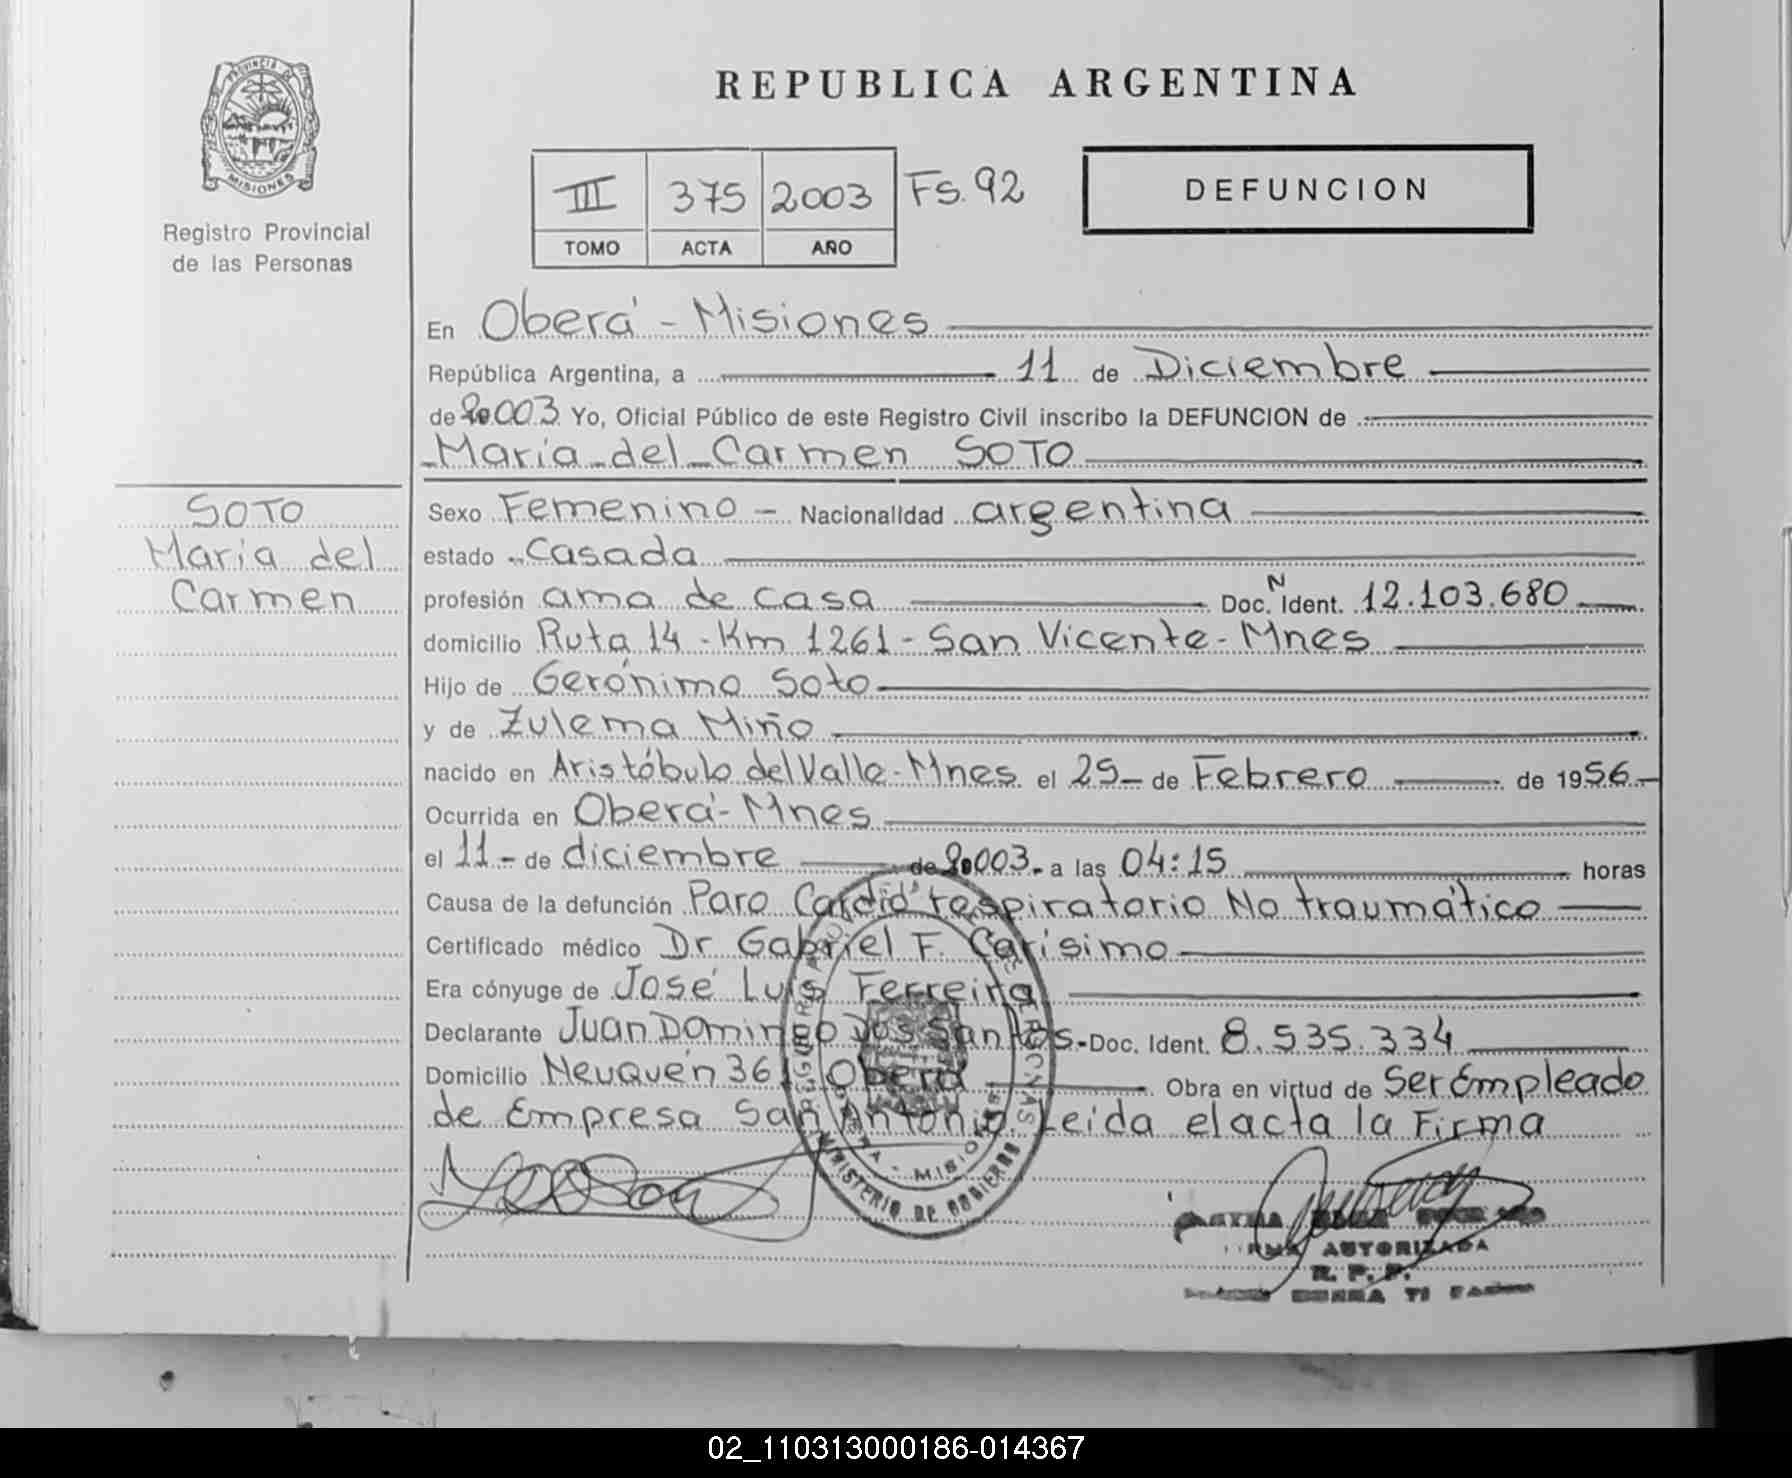 PROVINCIA DE
MISIONES
Registro Provincial
de las Personas
REPUBLICA ARGENTINA
III 375 2003 Fs. 92
TOMO ACTA AÑO
DEFUNCION
En Oberá - Misiones
República Argentina, a 11 de Diciembre
de 2003 Yo, Oficial Público de este Registro Civil inscribo la DEFUNCION de
María del Carmen SOTO
SOTO
María del
Carmen
Sexo Femenino - Nacionalidad argentina
estado casada
profesión ama de casa Doc. N Ident. 12.103.680
domicilio Ruta 14 - Km 1261 - San Vicente - Mnes
Hijo de Gerónimo Soto
y de Zulema Miño
nacido en Aristóbulo del Valle - Mnes el 25 de Febrero de 1956.-
Ocurrida en Oberá - Mnes
el 11 - de diciembre de 2003.- a las 04:15 horas
Causa de la defunción Paro Cardio respiratorio No traumático
Certificado médico Dr Gabriel F. Carísimo
Era cónyuge de José Luis Ferreira
Declarante Juan Domingo Dos Santos.- Doc. Ident. 8.535.334
Domicilio Neuquén 36 Oberá Obra en virtud de Ser Empleado
de Empresa San Antonio. Leida el acta la Firma
MISIONES
MINISTERIO DE GOBIERNO
FIRMA AUTORIZADA
R. P. P.
02_110313000186-014367